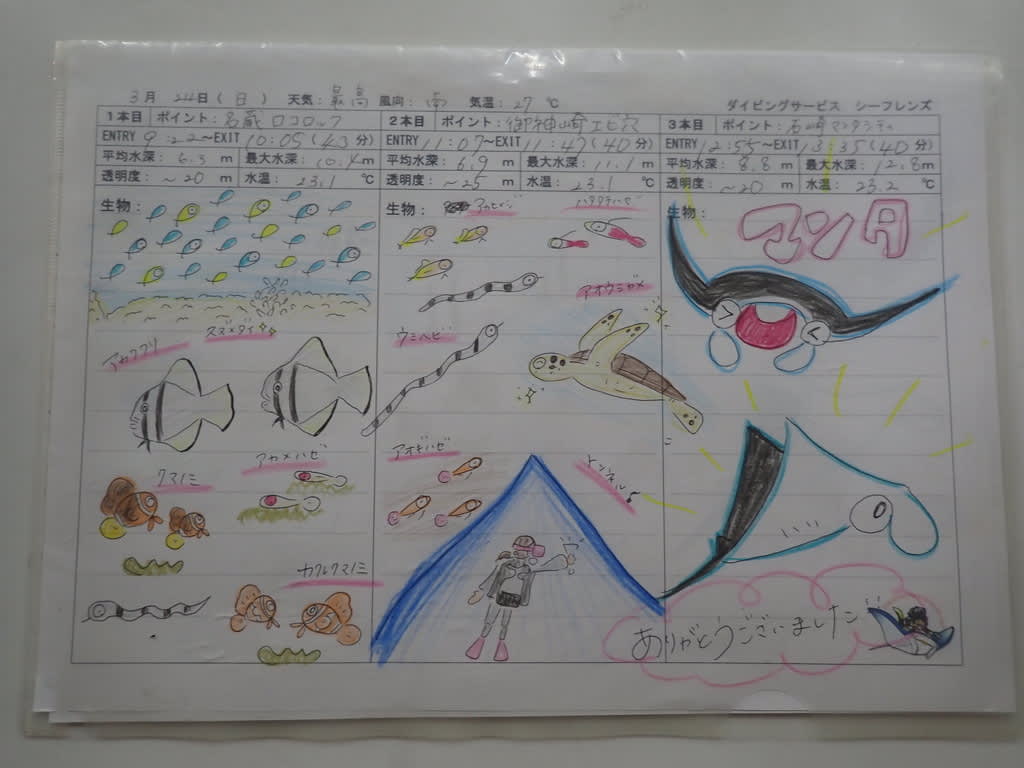 3月 24日(日) 天気:最高 風向:南 気温:27℃
ダイビングサービス シーフレンズ
1本目 ポイント:名蔵ロコロック
ENTRY 9:22~EXIT 10:05(43分)
平均水深:6.3m 最大水深:10.4m
透明度:~20m 水温:23.1℃
生物:
スズメダイ
アカククリ
クマノミ
アカメハゼ
カクレクマノミ
2本目 ポイント:御神崎エビ穴
ENTRY 11:07~EXIT 11:47(40分)
平均水深:6.9m 最大水深:11.1m
透明度:~25m 水温:23.1℃
生物:
ハタタテハゼ
アオウミガメ
ウミヘビ
アオギハゼ
トンネル♪
3本目 ポイント:石崎マンタシティ
ENTRY 12:55~EXIT 13:35(40分)
平均水深:8.8m 最大水深:12.8m
透明度:~20m 水温:23.2℃
生物:
マンタ
ありがとうございました